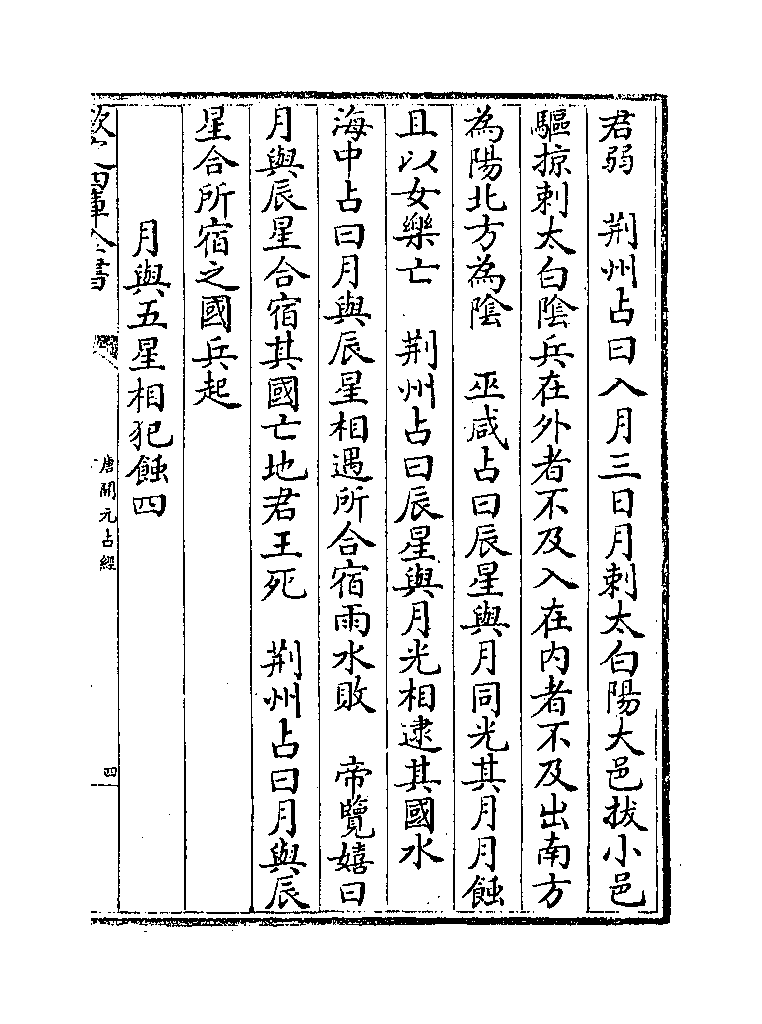 君弱　荆州占曰入月三日月刺太白陽大邑拔小邑
驅掠刺太白陰兵在外者不及入在内者不及出南方
為陽北方為陰　巫咸占曰辰星與月同光其月月蝕
且以女樂亡　荆州占曰辰星與月光相逮其國水
海中占曰月與辰星相遇所合宿雨水敗　帝覽嬉曰
月與辰星合宿其國亡地君王死　荆州占曰月與辰
星合所宿之國兵起
月與五星相犯蝕四
欽定四庫全書
唐開元占經
四